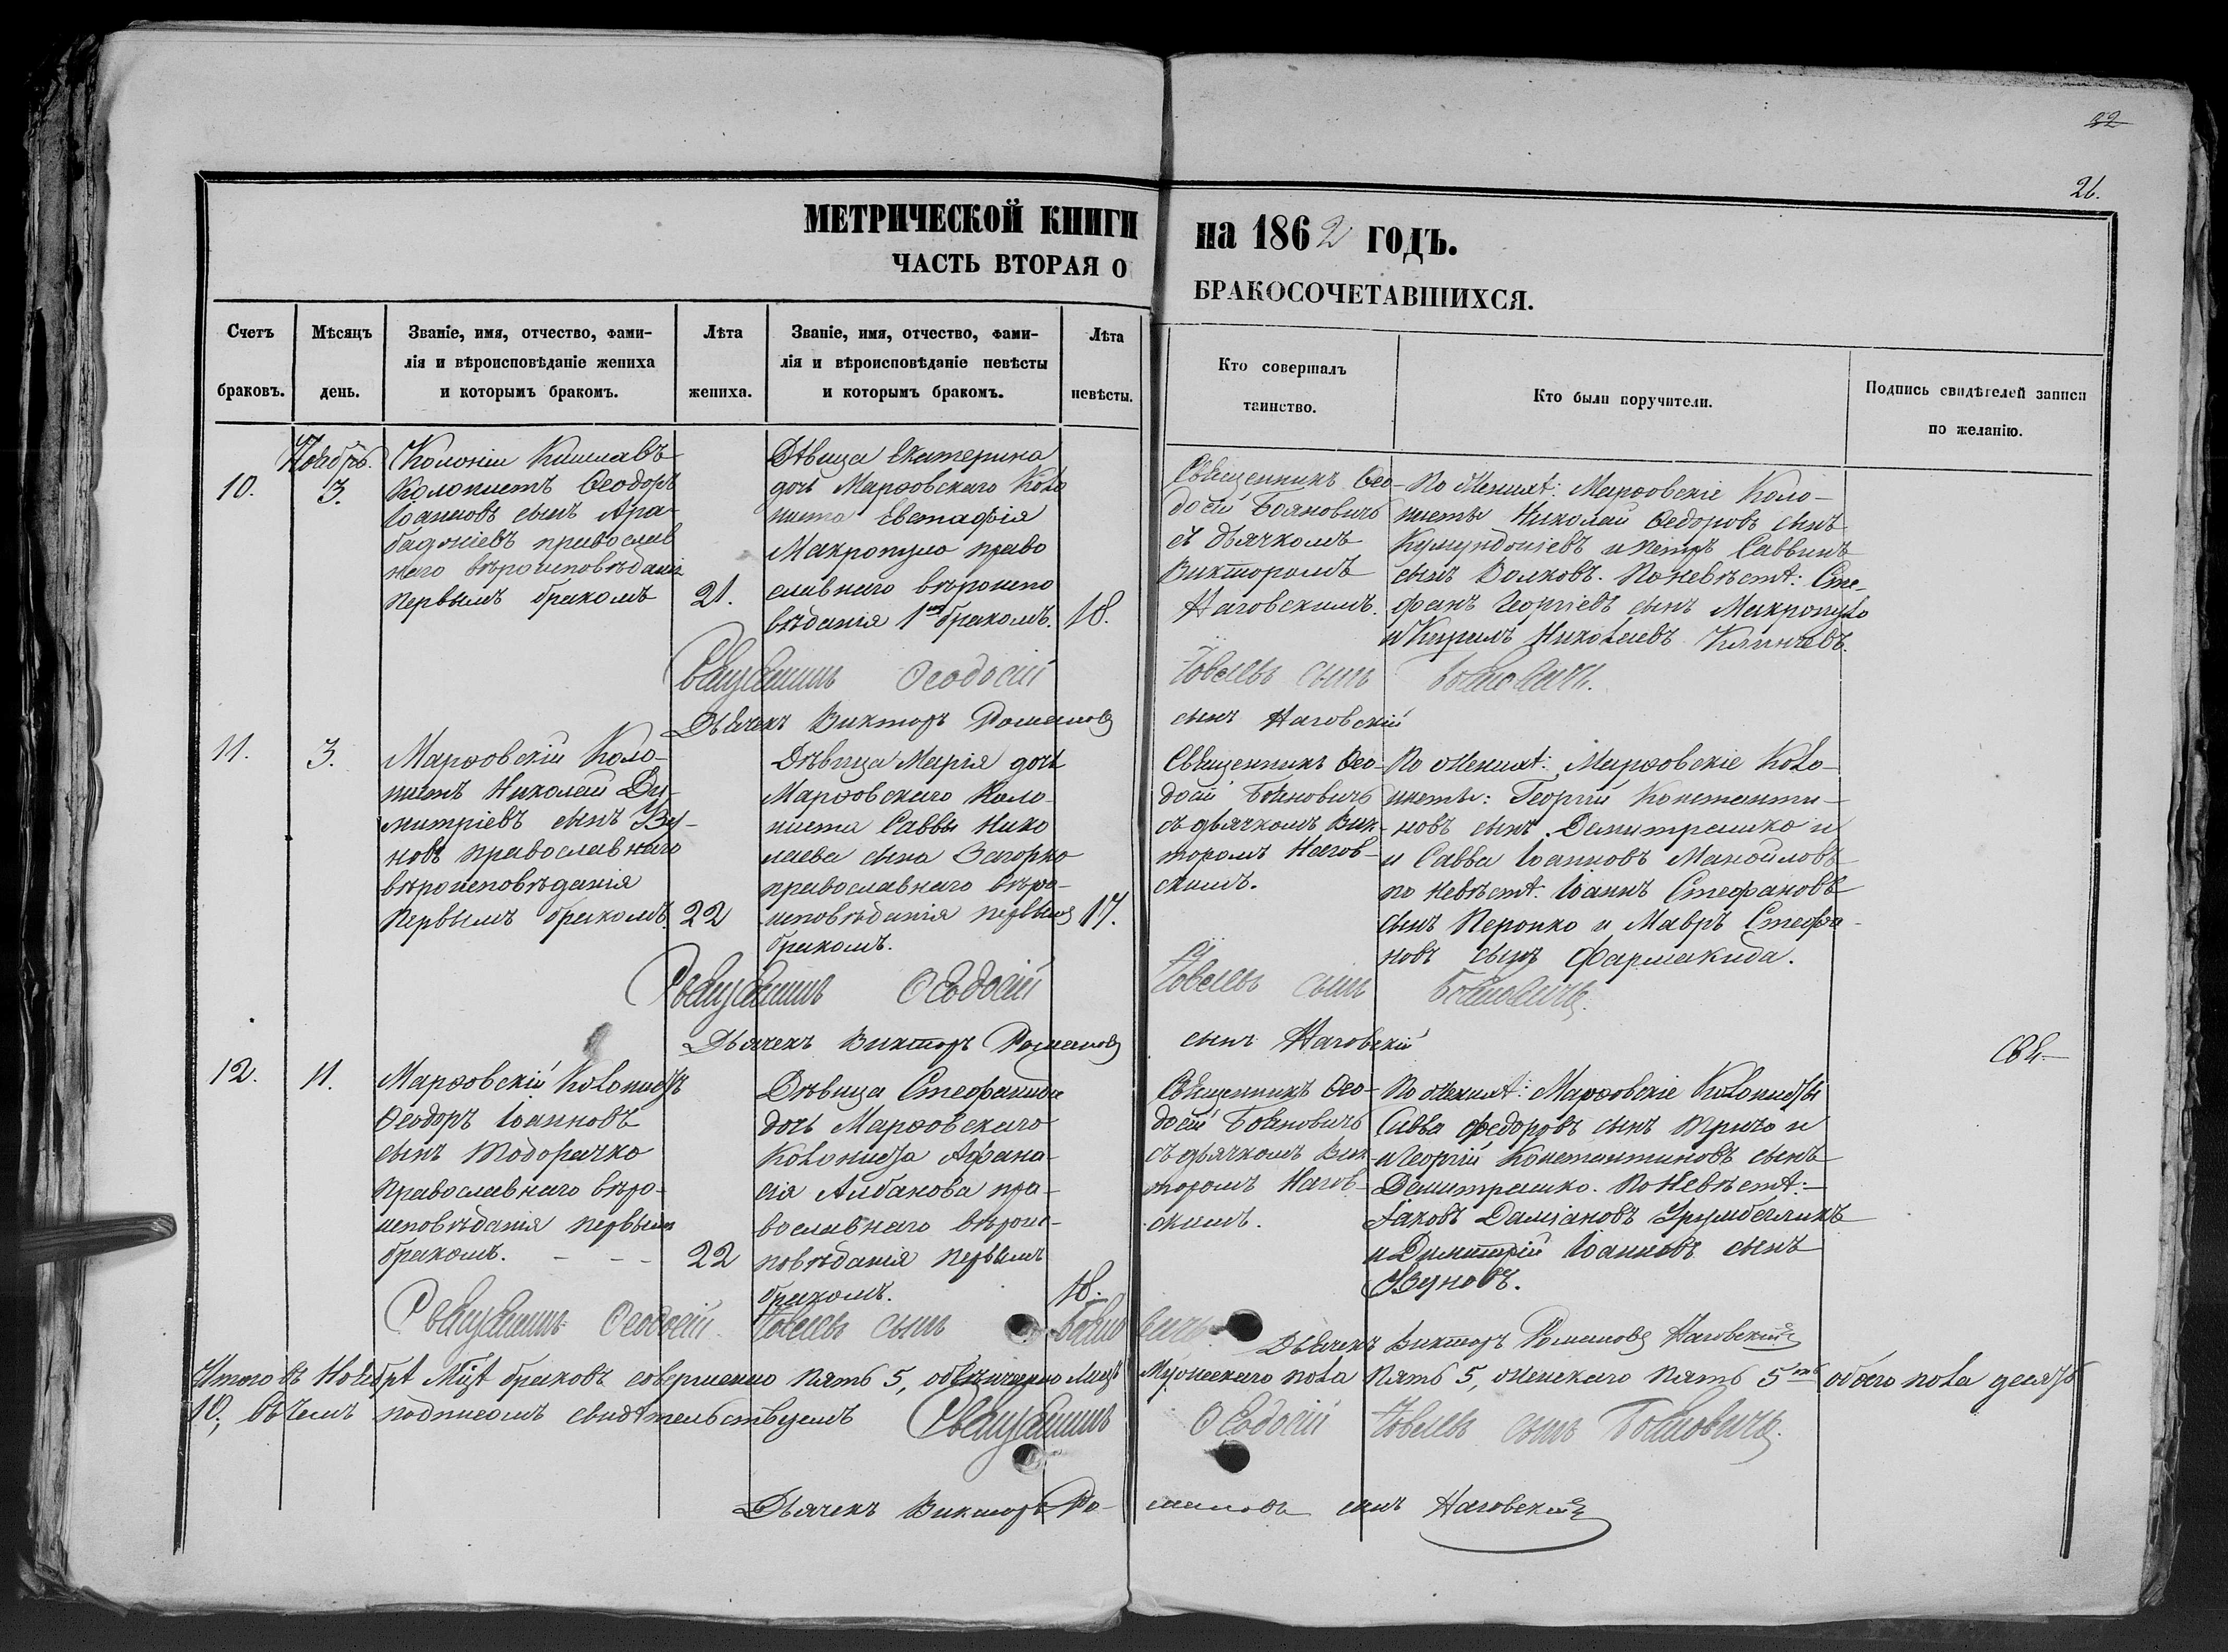 22
26.
МЕТРИЧЕСКОЙ КНИГИ на 1862 ГОДЪ.
ЧАСТЬ ВТОРАЯ О БРАКОСОЧЕТАВШИХСЯ.
Счетъ
браковъ.
Мѣсяцъ
день.
Званіе, имя, отчество, фами-
лія и вѣроисповѣданіе жениха
и которымъ бракомъ.
Лѣта
жениха.
Званіе, имя, отчество, фами-
лія и вѣроисповѣданіе невѣсты
и которымъ бракомъ.
Лѣта
невѣсты.
Кто совершалъ
таинство.
Кто были поручители.
Подпись свидѣтелей записи
по желанію.
10.
Ноябрь.
3.
Колоніи
Колонистъ Ѳеодоръ
Іоанновъ сынъ Ара-
баджіевъ православ
наго вѣроисповѣданія
Первымъ бракомъ
21.
Дѣвица Екатерина
дочь Марѳовскаго Коло
ниста Евстафія
Макропуло право
славнаго вѣроиспо
вѣданія 1мъ бракомъ.
18.
Священникъ Ѳео-
досій Бояновичъ
съ дьячкомъ
Викторомъ
Наговскимъ.
По женихѣ: Марѳовскіе Коло-
нисты Николай Ѳедоровъ сынъ
и Петръ Саввинъ
сынъ Волковъ. По невѣстѣ: Сте-
фанъ Георгіевъ сынъ Макропуло
и Кирилъ Николаевъ
Священникъ Ѳеодосій Іовлевъ сынъ Бояновичъ.
Дьячекъ Викторъ Романовъ сынъ Наговскій
11.
3.
Марѳовскій Коло-
нистъ Николай Ди-
митріевъ сынъ Зу-
новъ православнаго
вѣроисповѣданія
Первымъ бракомъ.
22
Дѣвица Марія дочь
Марѳовскаго Коло-
ниста Саввы Нико
лаева сына Загорко
православнаго вѣро-
исповѣданія первымъ
бракомъ.
17.
Священникъ Ѳео-
досій Бояновичъ
съ дьячкомъ Вик-
торомъ Нагов-
скимъ.
По женихѣ: Марѳовскіе Коло-
нисты: Георгій Константи-
новъ сынъ Демитрашко и
и Савва Іоанновъ Манойловъ
по невѣстѣ: Іоаннъ Стефановъ
сынъ Перопко и Мавръ Стефа-
новъ сынъ Фармакида.
Священникъ Ѳеодосій Іовлевъ сынъ Бояновичъ.
Дьячекъ Викторъ Романовъ сынъ Наговскій
12.
11.
Марѳовскій Колонистъ
Ѳеодоръ Іоанновъ
сынъ Тодорачко
Православнаго вѣро-
исповѣданія первымъ
бракомъ. - - -
22
Дѣвица Стефанида
дочь Марѳовскаго
Колониста Афана-
сія Албанова пра-
вославнаго вѣроис-
повѣданія первымъ
бракомъ.
18.
Священникъ Ѳео-
досій Бояновичъ
съ дьячкомъ Вик-
торомъ Нагов-
скимъ.
По женихѣ: Марѳовскіе Колонисты
Савва Федоровъ сынъ Тричо и
и Георгій Константиновъ сынъ
Демитрашко. По Невѣстѣ:
Іаковъ Даміановъ
и Димитрій Іоанновъ сынъ
Зуновъ.
Священникъ Ѳеодосій Іовлевъ сынъ Бояновичъ
Дьячекъ Викторъ Романовъ Наговскій
Итого въ Ноябрѣ М҃цѣ браковъ совершено пять 5, обвѣнчано лицъ Мужескаго пола Пять 5, женскаго пять 5ть обоего пола десять
10, въ чемъ подписомъ свидѣтельствуемъ Священникъ Ѳеодосій Іовлевъ сынъ Бояновичъ.
Дьячекъ Викторъ Романовъ сынъ Наговскій